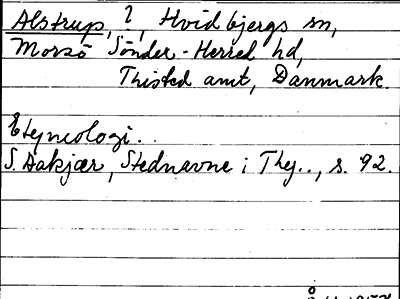 Alstrup, ?, Hvidbjergs sn,
Morsö Sönder-Herred hd,
Thisted amt, Danmark.
Etymologi..
S. Aakjær, Stednavne i Thy.., s. 92.